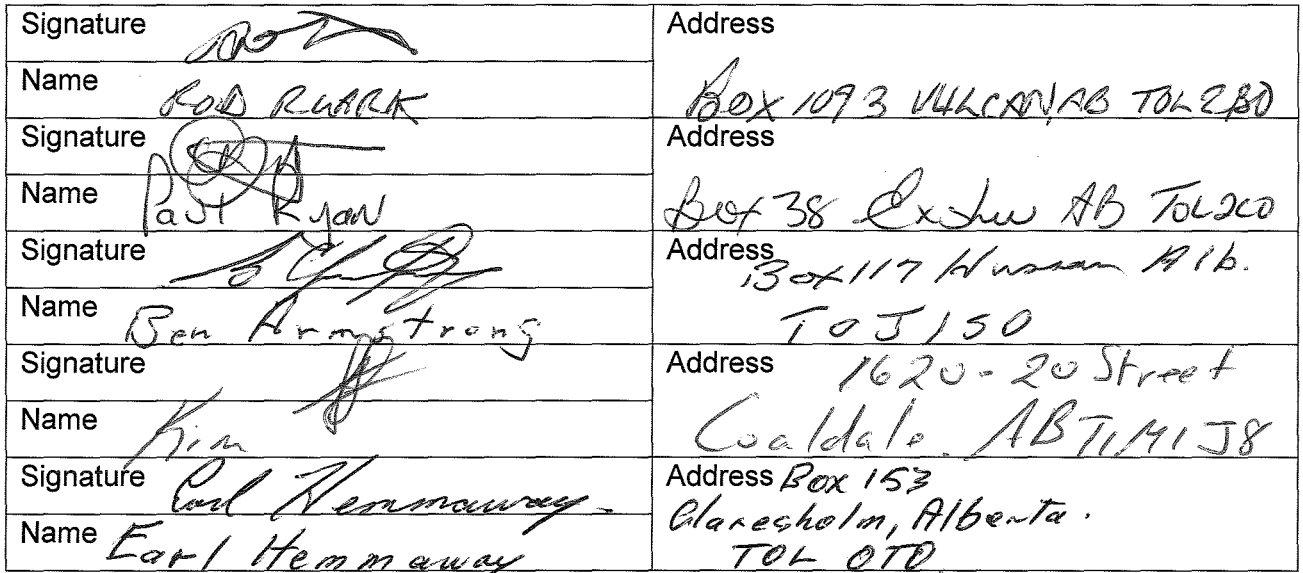 Signature Address
Name ROD RUARK Box 1093 VULCAN, AB T0L 2B0
Signature Address
Name Paul Ryan Box 38 Exshaw AB T0L 2C0
Signature Address Box 117 Hussar Alb.
Name Ben Armstrong T0J 1S0
Signature Address 1620-20 Street
Name Kim Coaldale. AB T1M1J8
Signature Earl Hemmaway. Address Box 153
Claresholm, Alberta.
Name Earl Hemmaway T0L 0T0